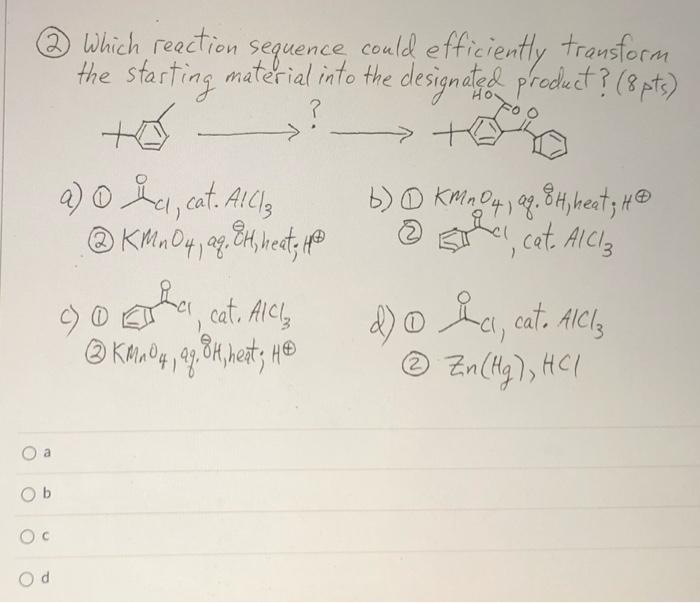 ② Which reaction sequence could efficiently transform
the starting material into the designated product? (8pts)
?
HO
O O
a) ① O Cl, cat. AlCl₃
② KMnO₄, aq. ⊖OH, heat; H⊕
b) ① KMnO₄, aq. ⊖OH, heat; H⊕
② O Cl, cat. AlCl₃
c) ① O Cl, cat. AlCl₃
② KMnO₄, aq. ⊖OH, heat; H⊕
d) ① O Cl, cat. AlCl₃
② Zn(Hg), HCl
a
b
c
d